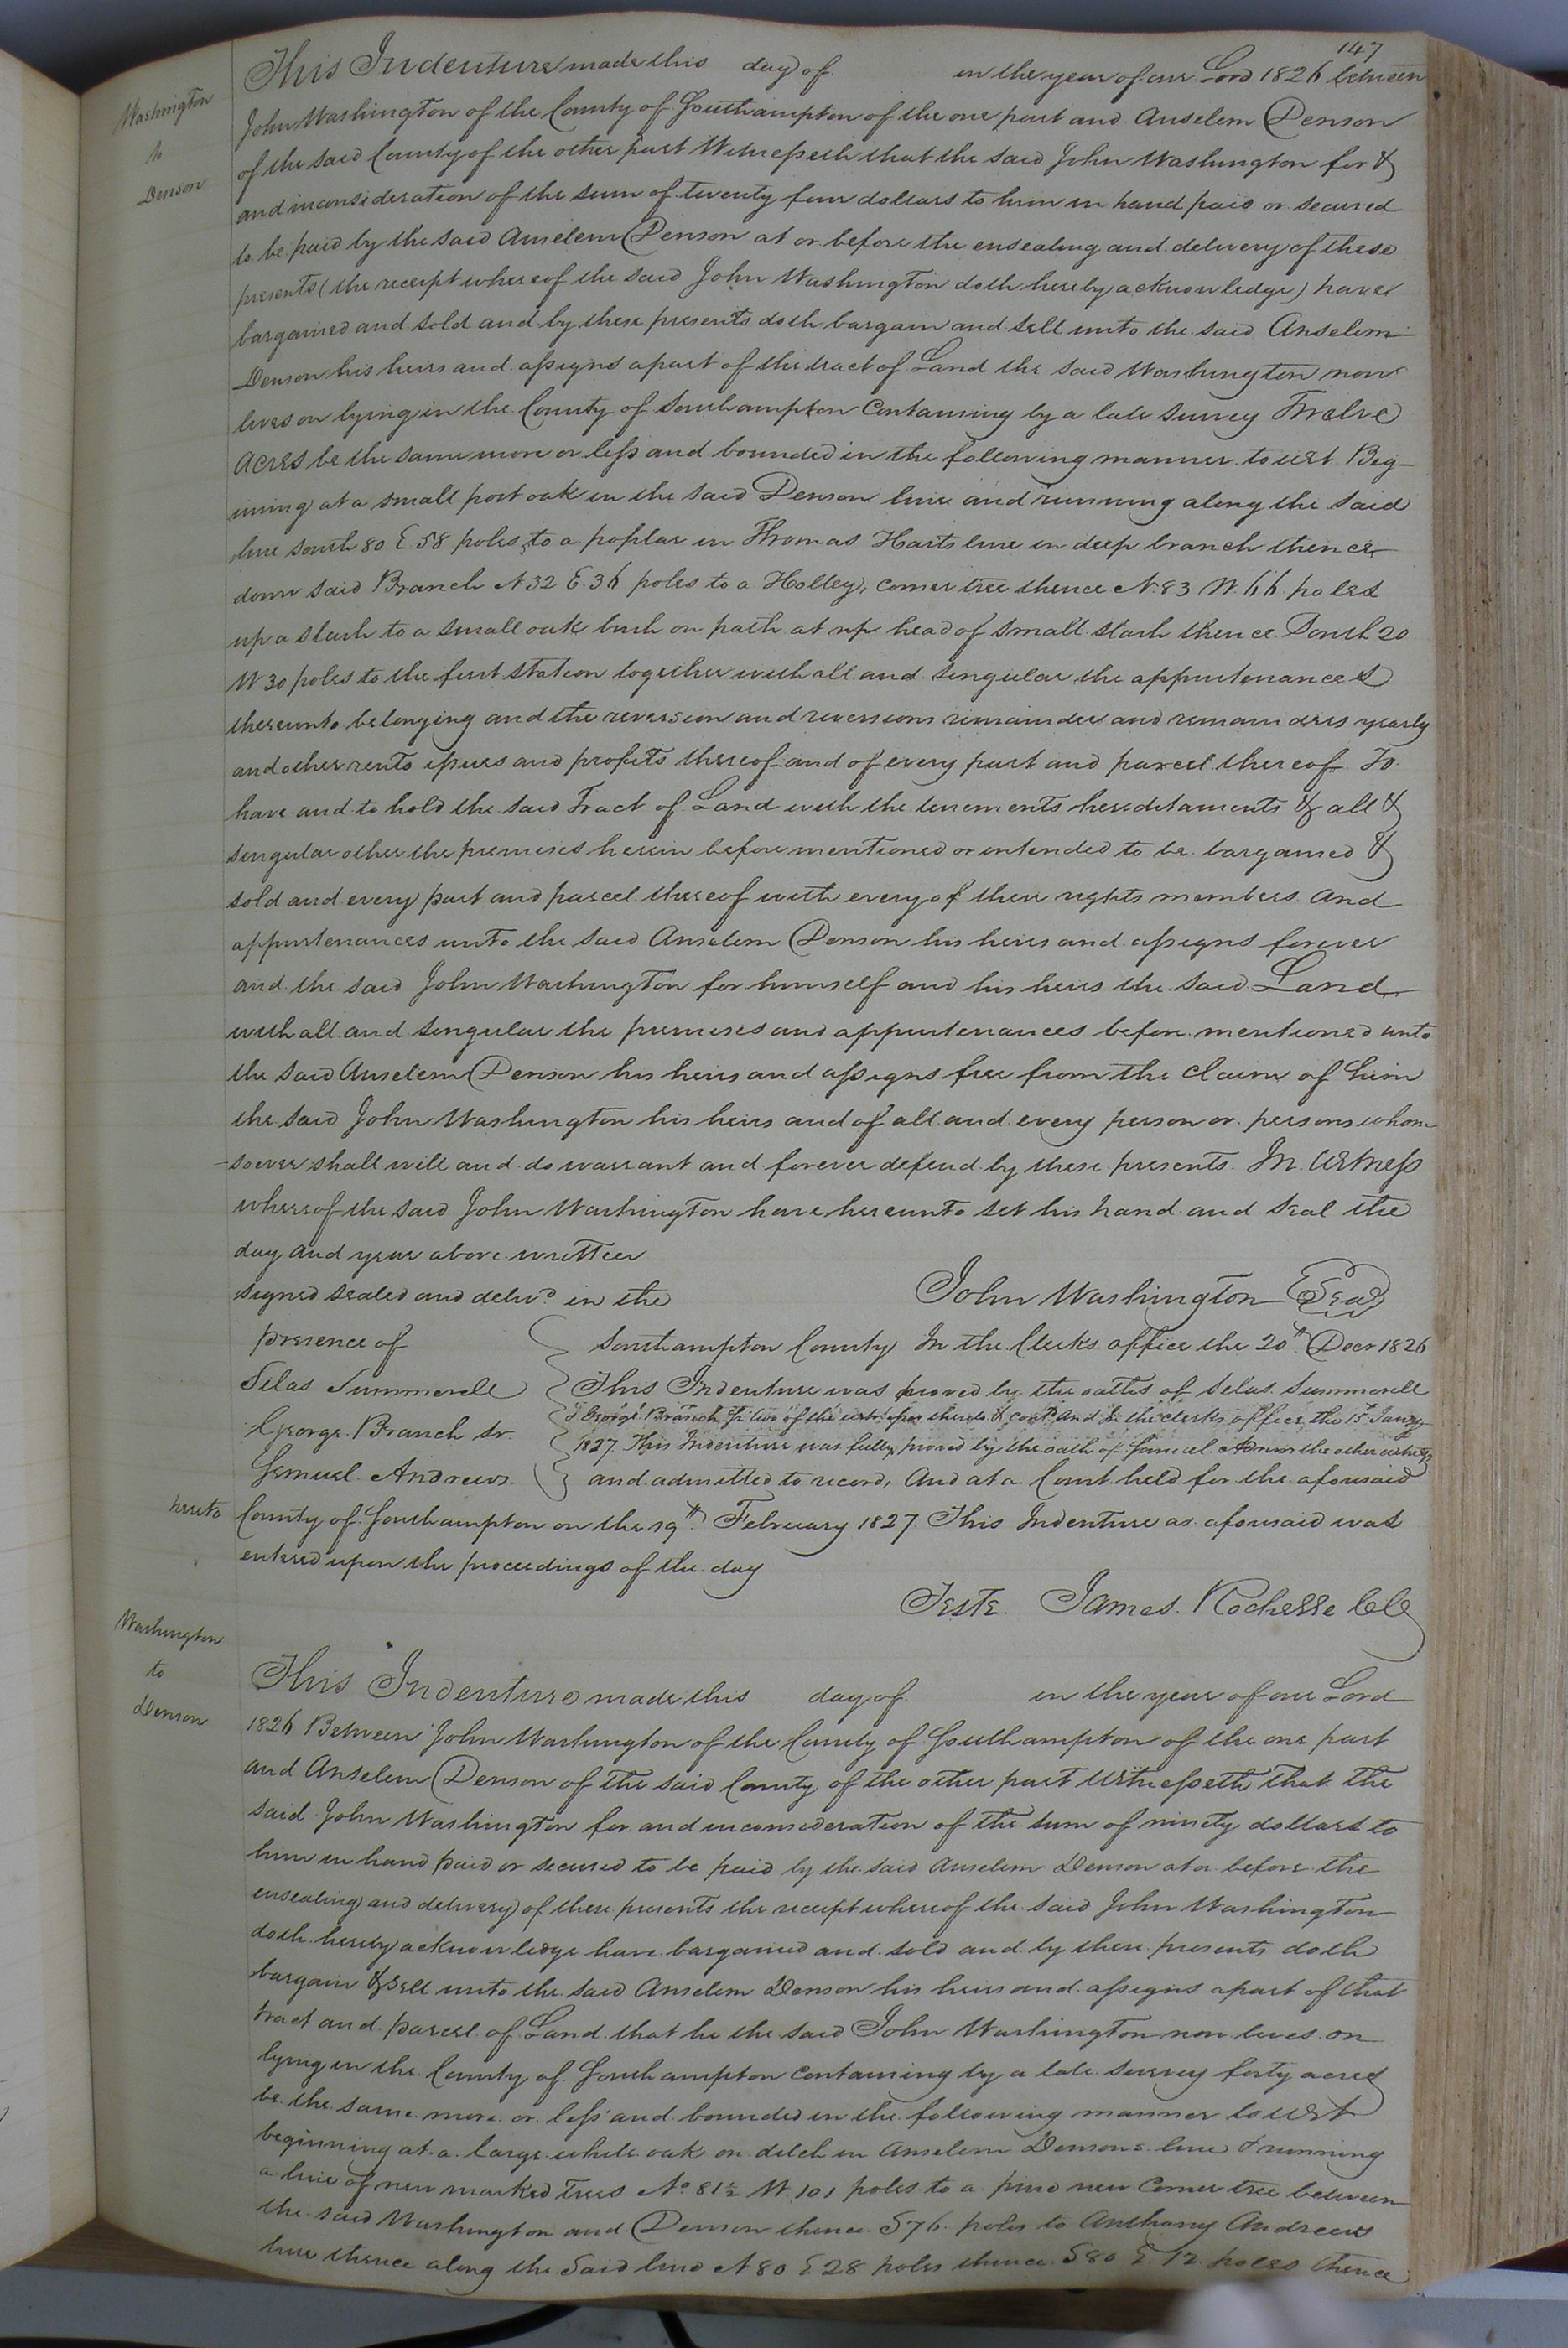 147
Washington
to
Denson
This Indenture made this day of in the year of our Lord 1826 between
John Washington of the County of Southampton of the one part and Anselem Denson
of the said County of the other part Witnesseth that the said John Washington for &
and inconsideration of the sum of twenty four dollars to him in hand paid or secured
to be paid by the said Anselem Denson at or before the ensealing and delivery of these
presents (the receipt whereof the said John Washington doth hereby acknowledge) have
bargained and sold and by these presents doth bargain and sell unto the said Anselem
Denson his heirs and assigns a part of the tract of Land the said Washington now
lives on lying in the County of Southampton Containing by a late survey Twelve
Acres be the same more or less and bounded in the following manner to wit Beg-
ining at a small post oak in the said Denson line and running along the said
line south 80 E 58 poles to a poplar in Thomas Harts line in deep branch thence
down said Branch N 32 E. 36 poles to a Holley, corner tree thence N. 83 W. 66 poles
up a slash to a small oak bush on path at head of small slash thence South 20
W 30 poles to the first station together with all and singular the appurtenances
thereunto belonging and the reversion and reversions remainder and remainders yearly
and other rents issues and profits thereof and of every part and parcel thereof To
have and to hold the said Tract of Land with the tenements hereditaments & all &
singular other the premises herein before mentioned or intended to be bargained &
sold and every part and parcel thereof with every of their rights members and
appurtenances unto the said Anselem Denson his heirs and assigns forever
and the said John Washington for himself and his heirs the said Land
with all and singular the premises and appurtenances before mentioned unto
the said Anselem Denson his heirs and assigns free from the claim of him
the said John Washington his heirs and of all and every person or persons whom
-soever shall will and do warrant and forever defend by these presents. In Witness
whereof the said John Washington have hereunto set his hand and seal the
day and year above written
signed sealed and delivd. in the John Washington Seal
presence of
Silas Summerell
George Branch sr.
Lemuel Andrews
Southampton County In the Clerks office the 20th Decr 1826
This Indenture was proved by the oaths of Silas Summerell
& George Branch Sr two of the witnesses thereto & contd And In the clerks office the 15 Jany
1827 This Indenture was fully proved by the oath of Lemuel Andrews the other witness
hereto
and admitted to record, And at a Court held for the aforesaid
County of Southampton on the 19th February 1827 This Indenture as aforesaid was
entered upon the proceedings of the day
Teste James Rochelle CC
Washington
to
Denson
This Indenture made this day of in the year of our Lord
1826 Between John Washington of the County of Southampton of the one part
and Anselem Denson of the said County of the other part Witnesseth that the
said John Washington for and inconsideration of the sum of ninety dollars to
him in hand paid or secured to be paid by the said Anselem Denson at or before the
ensealing and delivery of these presents the receipt whereof the said John Washington
doth hereby acknowledge have bargained and sold and by these presents doth
bargain & sell unto the said Anselem Denson his heirs and assigns a part of that
tract and parcel of Land that he the said John Washington now lives on
lying in the County of Southampton Containing by a late survey forty acres
be the same more or less and bounded in the following manner to wit
beginning at a large white oak on ditch in Anselem Densons line & running
a line of new marked Trees No 81½ W 101 poles to a pine new Corner tree between
the said Washington and Denson thence S 76 poles to Anthony Andrews
line thence along the Said line N 80 E 28 poles thence S 80 E. 12 poles thence